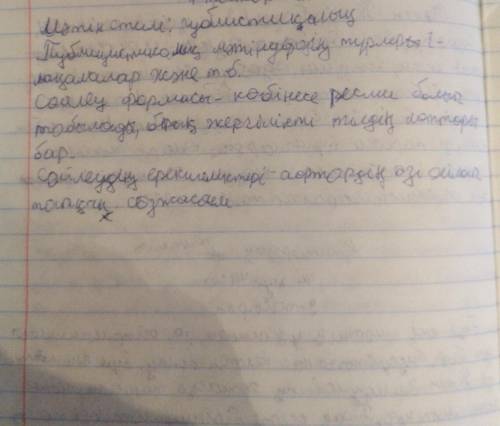 Мәтін стилі: публистикалық
Публицистикалық мәтіндердің түрлері -
мақалалар және т.б.
Сөйлеу формасы - көбінесе ресми болып
табылады, бірақ жергілікті тілдің
бар.
Сөйлеудің ерекшеліктері - автордың өзі ойлап
тапқан сөзжасам